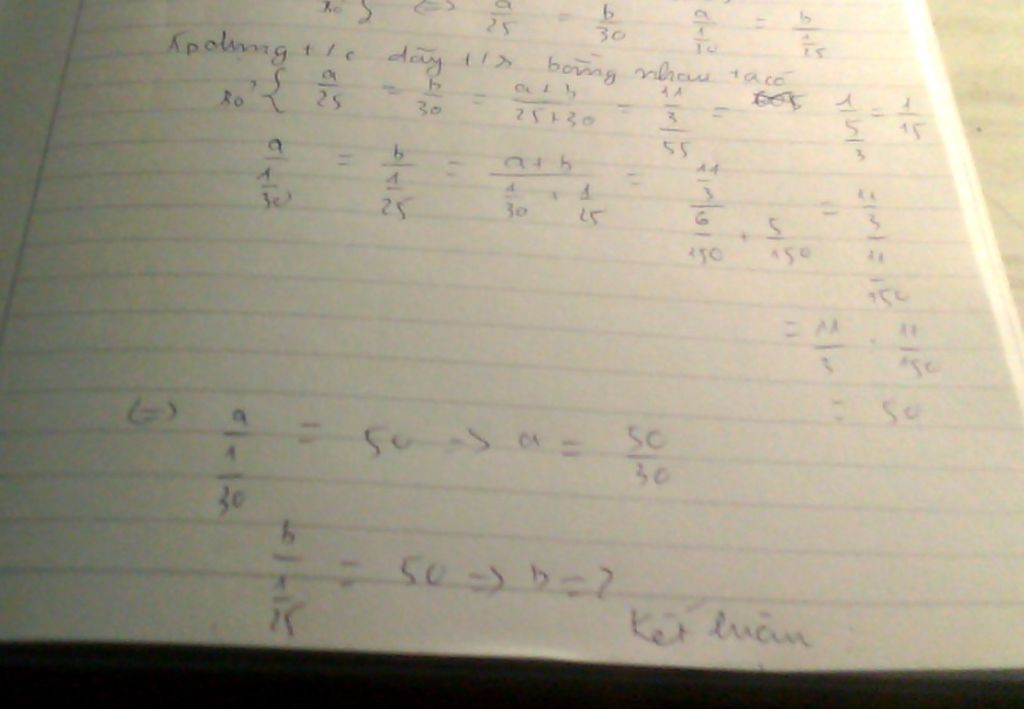 (=) a/25 = b/30 a/(1/30) = b/(1/25)
dãy bằng nhau ta có
{ a/25 = b/30 = (a+b)/(25+30) = (11/3)/55 = 1/(5/3) = 1/15
a/(1/30) = b/(1/25) = (a+b)/(1/30 + 1/25) = (11/3)/(6/150 + 5/150) = (11/3)/(11/150)
= 11/3 : 11/150
= 50
(=) a/(1/30) = 50 => a = 50/30
b/(1/25) = 50 => b = ?
Kết luận